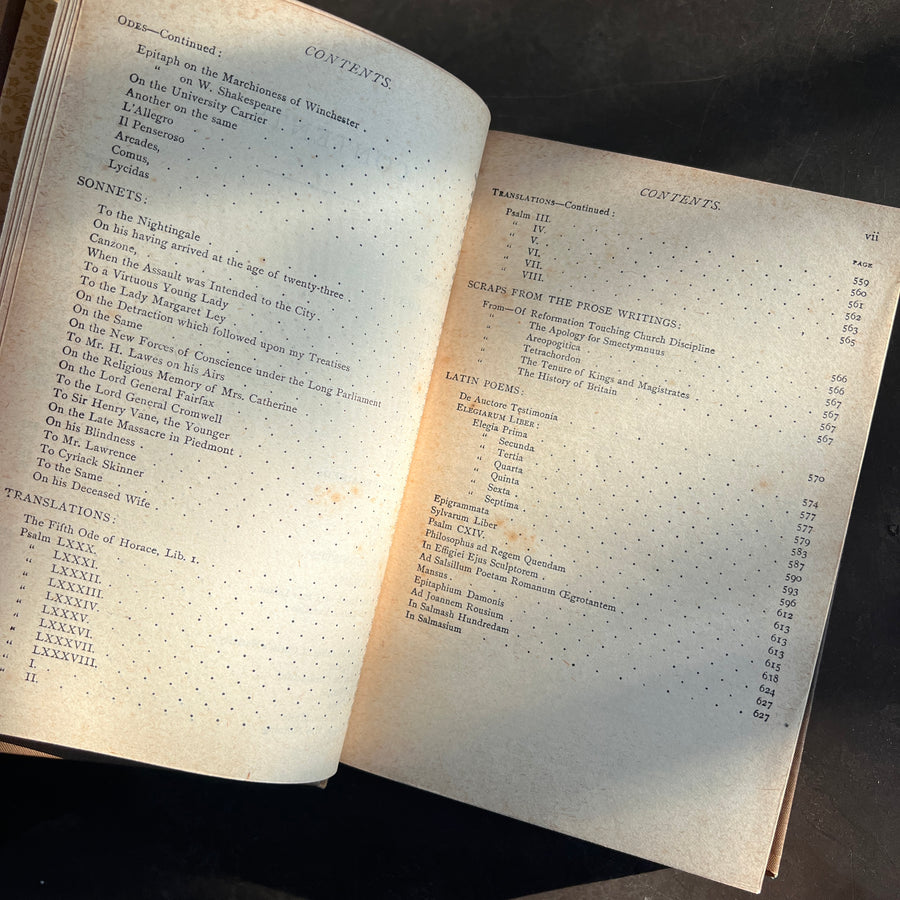 CONTENTS.
ODES—Continued:
Epitaph on the Marchioness of Winchester
" on W. Shakespeare
On the University Carrier
Another on the same
L'Allegro
Il Penseroso
Arcades,
Comus,
Lycidas
SONNETS:
To the Nightingale
On his having arrived at the age of twenty-three
Canzone,
When the Assault was Intended to the City
To a Virtuous Young Lady
To the Lady Margaret Ley
On the Detraction which followed upon my Treatises
On the Same
On the New Forces of Conscience under the Long Parliament
To Mr. H. Lawes on his Airs
On the Religious Memory of Mrs. Catherine
On the Lord General Fairfax
To the Lord General Cromwell
To Sir Henry Vane, the Younger
On the Late Massacre in Piedmont
On his Blindness
To Mr. Lawrence
To Cyriack Skinner
To the Same
On his Deceased Wife
TRANSLATIONS:
The Fifth Ode of Horace, Lib. I.
Psalm LXXX.
" LXXXI.
" LXXXII.
" LXXXIII.
" LXXXIV.
" LXXXV.
" LXXXVI.
" LXXXVII.
" LXXXVIII.
" I.
" II.
CONTENTS.
vii
TRANSLATIONS—Continued:
PAGE
Psalm III. 559
" IV. 560
" V. 561
" VI. 562
" VII. 563
" VIII. 565
SCRAPS FROM THE PROSE WRITINGS:
From—Of Reformation Touching Church Discipline 566
" The Apology for Smectymnuus 566
" Areopogitica 567
" Tetrachordon 567
" The Tenure of Kings and Magistrates 567
" The History of Britain 567
LATIN POEMS:
De Auctore Testimonia 570
ELEGIARUM LIBER:
Elegia Prima 574
" Secunda 577
" Tertia 577
" Quarta 579
" Quinta 583
" Sexta 587
" Septima 590
Epigrammata 593
Sylvarum Liber 596
Psalm CXIV. 612
Philosophus ad Regem Quendam 613
In Effigiei Ejus Sculptorem 613
Ad Salsillum Poetam Romanum Œgrotantem 613
Mansus 615
Epitaphium Damonis 618
Ad Joannem Rousium 624
In Salmash Hundredam 627
In Salmasium 627